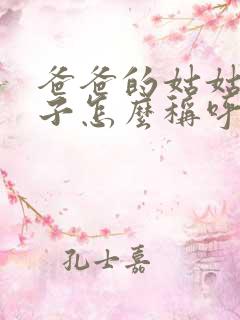 爸爸的姑姑
子怎麼稱呼
孔士嘉